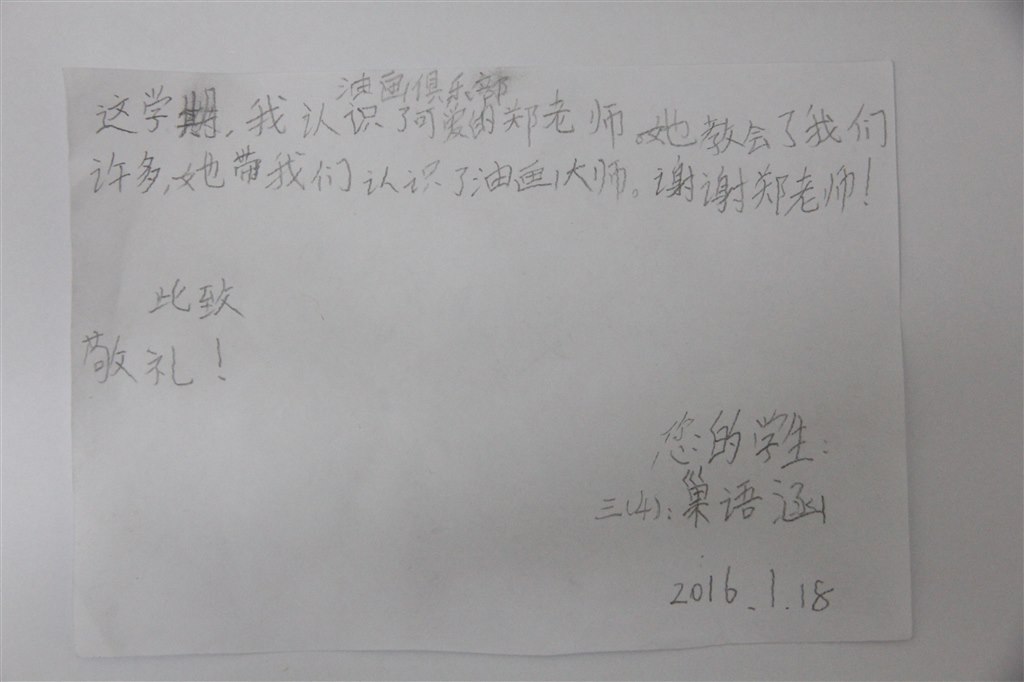 油画俱乐部
这学期，我认识了可爱的郑老师。她教会了我们
许多，她带我们认识了油画大师。谢谢郑老师！
此致
敬礼！
您的学生：
三(4)：巢语涵
2016.1.18